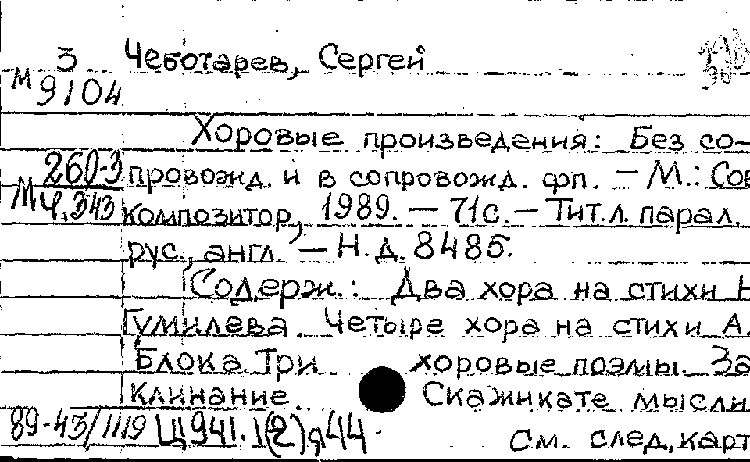 3 Чеботарев, Сергей
М 9104
Хоровые произведения: Без со-
260-3 провожд. и в сопровожд. фп. — М.: Сов
М Ч.343 композитор, 1989. — 71с. — Тит.л. парал.
рус., англ. — Н.д. 8485.
Содерж.: Два хора на стихи Н
Гумилева. Четыре хора на стихи А.
Блока. Три хоровые поэмы. За
клинание. Скажикате мысли
89-43/1119 Ц941.1(2)я44
См. след. карт